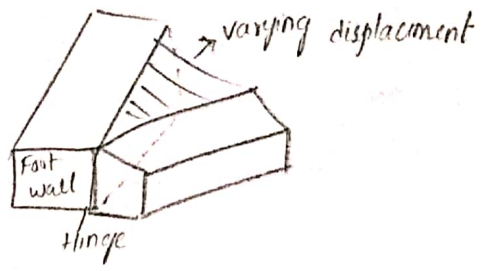 varying displacment
Foot
wall
Hinge